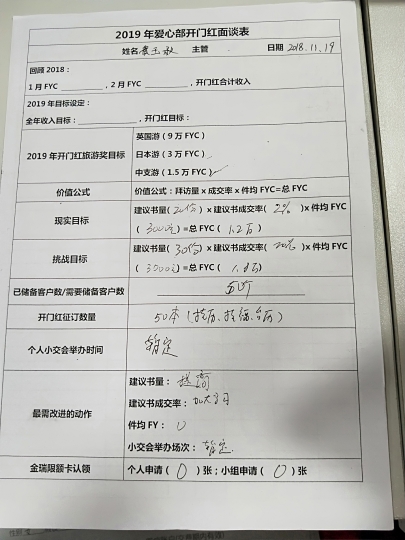 2019 年爱心部开门红面谈表
姓名 主管 日期 2018.11.19
回顾 2018：
1 月 FYC ，2 月 FYC ，开门红合计收入
2019 年目标设定：
全年收入目标： ，开门红目标：
2019 年开门红旅游奖目标
英国游（9 万 FYC）
日本游（3 万 FYC）
中支游（1.5 万 FYC）✓
价值公式 价值公式：拜访量 x 成交率 x 件均 FYC=总 FYC
现实目标
建议书量( 20份 ) x 建议书成交率( 2% )x 件均 FYC
( 3000元 )=总 FYC ( 1.2万 )
挑战目标
建议书量( 30份 ) x 建议书成交率( 20% )x 件均 FYC
( 3000元 )=总 FYC ( 1.8万 )
已储备客户数/需要储备客户数
开门红征订数量 50本
个人小交会举办时间 暂定
最需改进的动作
建议书量：
建议书成交率： 加大学习
件均 FY： 0
小交会举办场次： 暂定
金瑞限额卡认领 个人申请 ( 0 ) 张；小组申请 ( 0 ) 张